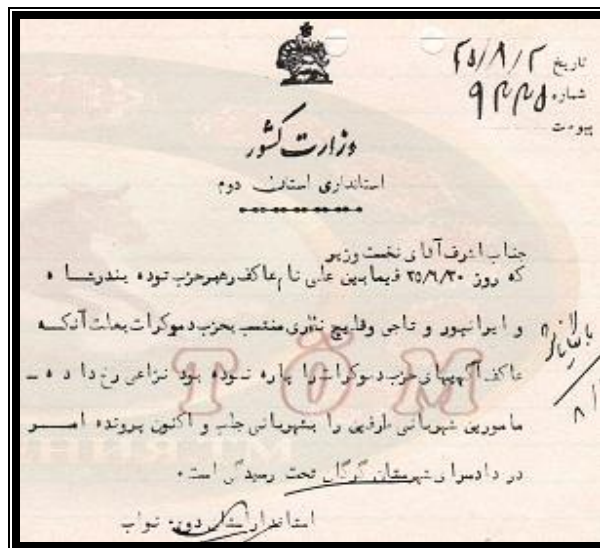 تاریخ ۲۵/۸/۲
شماره ۹۴۴۵
پیوست
وزارت کشور
استانداری استان دوم
جناب اشرف آقای نخست وزیر
که روز ۲۵/۹/۳۰ فیمابین علی نام عاکف رهبر حزب توده بندرشاه
و ایرانپور و تاجی وقلیچ نظری منتسب بحزب دموکرات بعلت آنکه
عاکف آگهیهای حزب دموکرات را پاره نموده بود نزاعی رخ داده
مامورین شهربانی طرفین را بشهربانی جلب و اکنون پرونده امر
در دادسرای شهرستان گرگان تحت رسیدگی است.
استاندار استان دوم نواب
TÖM